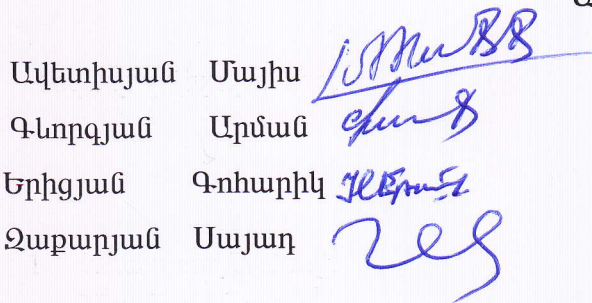 Ավետիսյան Մայիս
Գևորգյան Արման
Երիցյան Գոհարիկ
Զաքարյան Սայադ